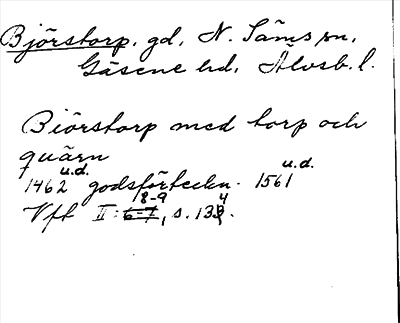 Björstorp, gd, N. Säms sn,
Gäsene hd, Älvsb. l.
Biörstorp med torp och
quärn
1462 u.d. godsförteckn. 1561 u.d.
Vft II: 8-9, s. 134.